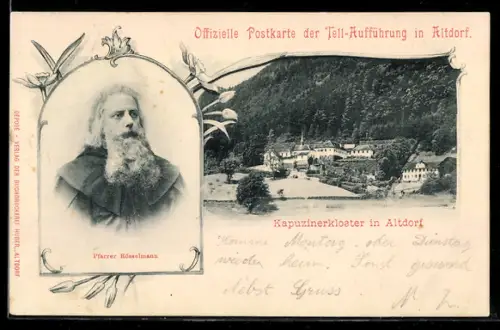 Offizielle Postkarte der Tell-Aufführung in Altdorf.
DEPOSÉ - VERLAG DER BUCHDRUCKEREI HUBER, ALTDORF
Pfarrer Rösselmann
Kapuzinerkloster in Altdorf
Komme Montag oder Dienstag
wieder heim. Sonst gesund
Nebst Gruss